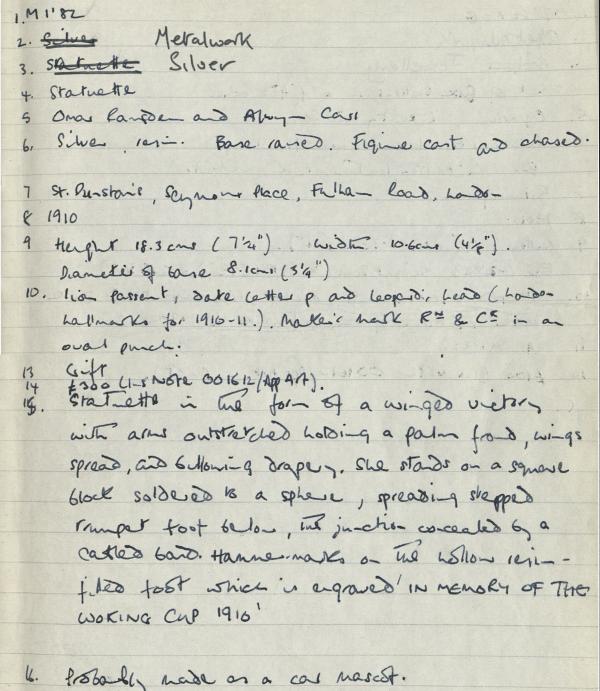 1. M 1'82
2. Silver Metalwork
3. Statuette Silver
4. Statuette
5 Omar Ramsden and Alwyn Carr
6. Silver, resin. Base raised. Figure cast and chased.
7 St. Dunstan's, Seymour Place, Fulham Road, London
8 1910
9 Height 18.3 cms (7¼"). Width 10.6cms (4⅛").
Diameter of base 8.1cms (3¼")
10. lion passant, date letter p and leopard's head (London
hallmarks for 1910-11.). Maker's mark Rᴺ & Cᴿ in an
oval punch.
13 Gift
14 £300 (Ins Note 001612/App Art).
15. Statuette in the form of a winged victory
with arms outstretched holding a palm frond, wings
spread, and billowing drapery. She stands on a square
block soldered to a sphere, spreading stepped
trumpet foot below, the junction concealed by a
cabled band. Hammer-marks on the hollow resin-
filled foot which is engraved 'IN MEMORY OF THE
WOKING CUP 1910'
16. Probably made as a car mascot.